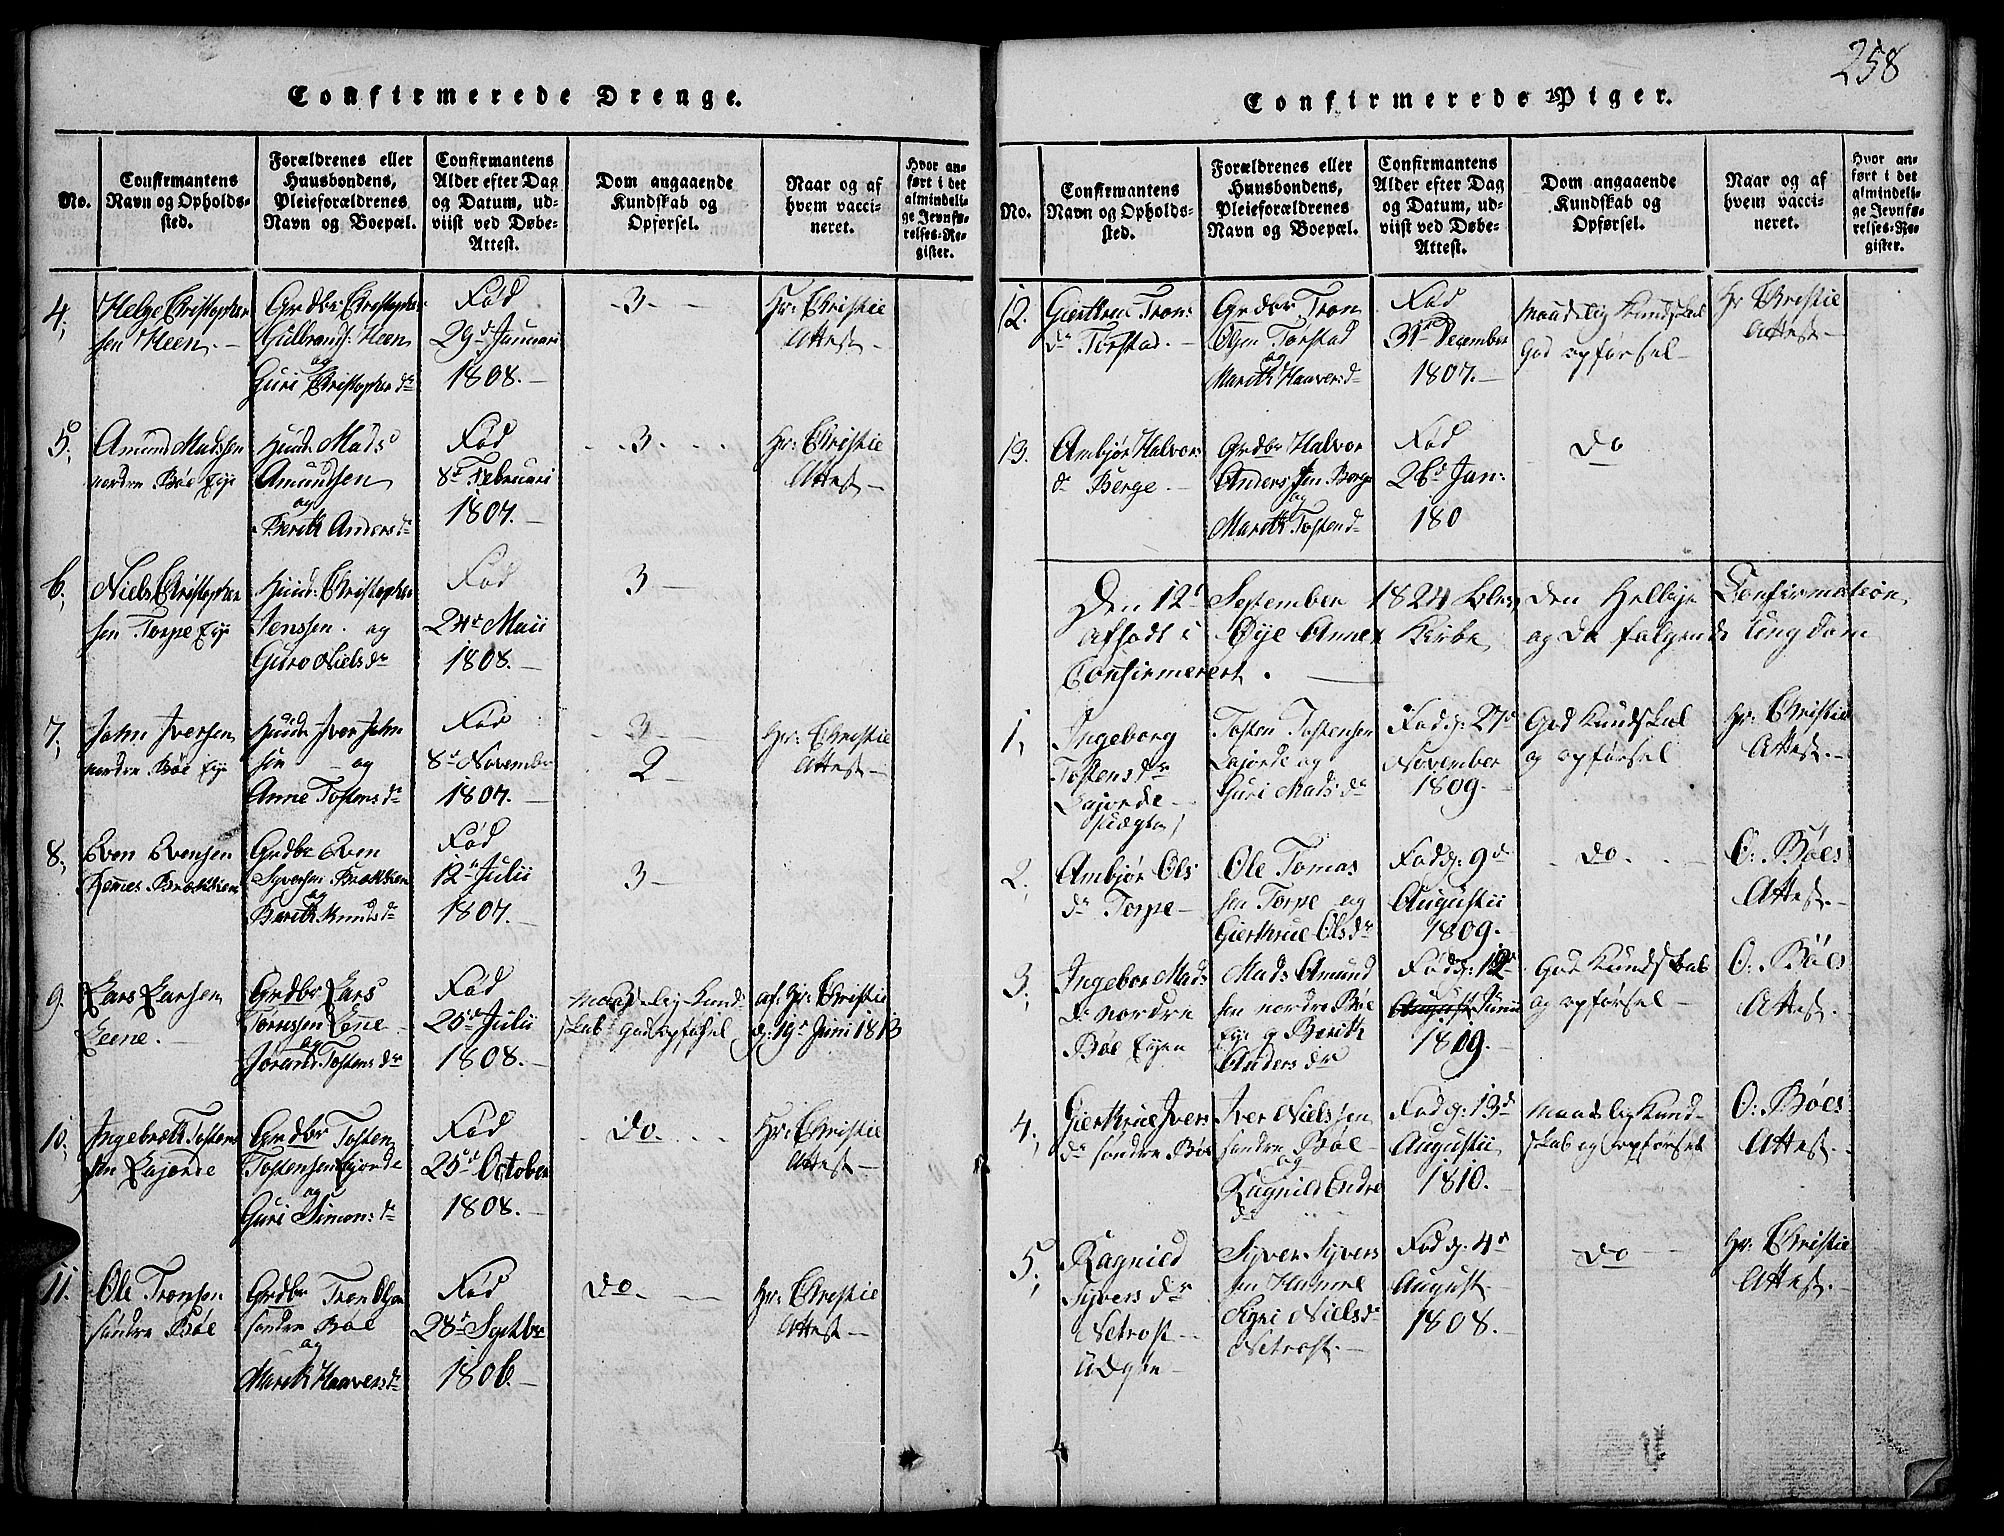 258
Confirmerede Drenge.
No.
Confirmantens
Navn og Opholds-
sted.
Forældrenes eller
Huusbondens,
Pleieforældrenes
Navn og Boepæl.
Confirmantens
Alder efter Dag
og Datum, ud-
viist ved Døbe-
Attest.
Dom angaaende
Kundskab og
Opførsel.
Naar og af
hvem vacci-
neret.
Hvor an-
ført i det
almindeli-
ge Jevnfø-
relses-Re-
gister.
4,
Helge Christopher
sen Heen. -
Grdbr Christopher
Gulbrands: Heen
og
Guri Christopher dr
Fød
29d Januari
1808. -
- 3 -
Hr: Christie
Attest -
5,
Amund Madssen
nordre Bøe Eye
Huusd Mads
Amundsen
og
Berith Anders dr
Fød
8d Februari
1807. -
- 3 -
Hr: Christie
Attest -
6,
Niels Christopher
sen Torpe Eye
Huusd: Christopher
Jenssen. og
Guro Niels dr
Fød
24d Maii
1808. -
3 -
7,
John Iversen
nordre Bøe Eye
Huusd Iver John
sen - og
Anne Tostens dr
Fød
8d November
1807. -
- 3 -
2 -
Hr: Christie
Attest -
8,
Even Evensen
Remes Brækken
Grdbr Even
Syversen Brækken
og
Berith Knuds dr
Fød
12d Julii
1807. -
3 -
9.
Lars Larsen
Leene. -
Grdbr Lars
Leene -
og
Jørand Tostens dr
Fød
25d Julii
1808. -
Maadelig Kund
skab God opførsel
af Hr: Christie
d: 19d Juni 1813
10,
Ingebreth Tostens
sen Lajorde
Grdbr Tosten
Tostensen Lajorde
og
Guri Simon: dr
Fød
25d October
1808. -
- do. -
Hr: Christie
Attest -
11.
Ole Tronsen
søndre Bøe
Grdbr Tron Olsen
søndre Bøe
og
Marith Haavers dr
Fød
28d Septbr
1806. -
do. -
Hr: Christie
Attest -
Confirmerede Piger.
No.
Confirmantens
Navn og Opholds-
sted.
Forældrenes eller
Huusbondens,
Pleieforældrenes
Navn og Boepæl.
Confirmantens
Alder efter Dag
og Datum, ud-
viist ved Døbe-
Attest.
Dom angaaende
Kundskab og
Opførsel.
Naar og af
hvem vacci-
neret.
Hvor an-
ført i det
almindeli-
ge Jevnfø-
relses-Re-
gister.
12.
Giertrue Trons
dr Torstad. -
Grdbr Tron
Olsen Torstad
og
Marith Haavers dr
Fød
31d December
1807. -
Maadelig Kundskab
God opførsel -
Hr Christie
Attest -
13.
Ambjør Halvors
dr Berge -
Grdbr Halvor
Anders sen Berge
og
Marith Tosten dr
Fød
26d Jan:
180
do
Den 12d September 1824 blev den Hellige Confirmation
afholdt i Øye Annex Kirke og da følgende Ungdom
Confirmerert.
1,
Ingeborg
Tostens dr
Lajorde -
Tosten Tostensen
Lajorde og
Guri Mads dr
Fød d: 27d
November
1809. -
God Kundskab
og opførsel
Hr: Christie
Attest. -
2,
Ambjør Ols
dr Torpe -
Ole Tomas
sen Torpe og
Giertrue Ols dr
Fød d: 9d
Augustii
1809. -
- do. -
O: Bøes
Attest. -
3,
Ingebor Mads
dr nordre
Bøe Eyen
Mads Amund
sen nordre Bøe
Eye g Berith
Anders dr
Fød d: 12d
August Junii
1809. -
God Kundskab
og opførsel -
O: Bøes
Attest. -
4,
Giertrue Ivers
dr søndre Bøe
Iver Nielssen
søndre Bøe -
og
Ragnild Endre
dr
Fød d: 13d
Augustii
1810. -
Maadelig Kund
skab og opførsel
O: Bøes
Attest. -
5,
Ragnild
Syvers dr
Netrost -
Udgøe -
Syver Syvers
sen Hamre
Sigri Niels dr
Netrost. -
Fød d: 4d
August -
1808. -
do -
Hr: Christie
Attest. -